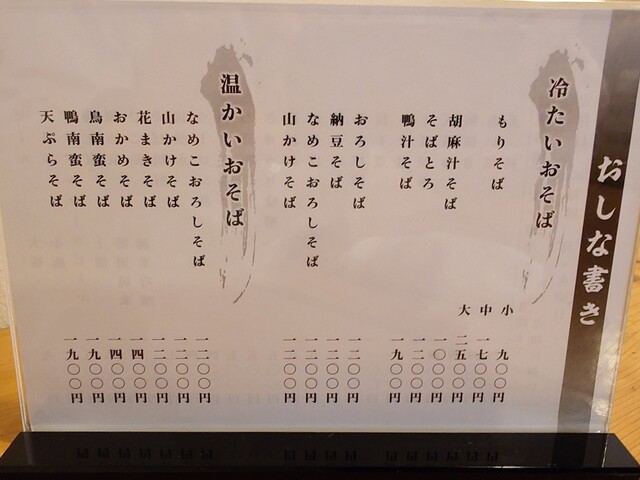 おしな書き
冷たいおそば
もりそば 小 九〇〇円
中 一七〇〇円
大 二五〇〇円
胡麻汁そば 一〇〇〇円
そばとろ 一二〇〇円
鴨汁そば 一九〇〇円
おろしそば 一二〇〇円
納豆そば 一二〇〇円
なめこおろしそば 一二〇〇円
山かけそば 一二〇〇円
温かいおそば
なめこおろしそば 一二〇〇円
山かけそば 一二〇〇円
花まきそば 一二〇〇円
おかめそば 一四〇〇円
鳥南蛮そば 一四〇〇円
鴨南蛮そば 一九〇〇円
天ぷらそば 一九〇〇円